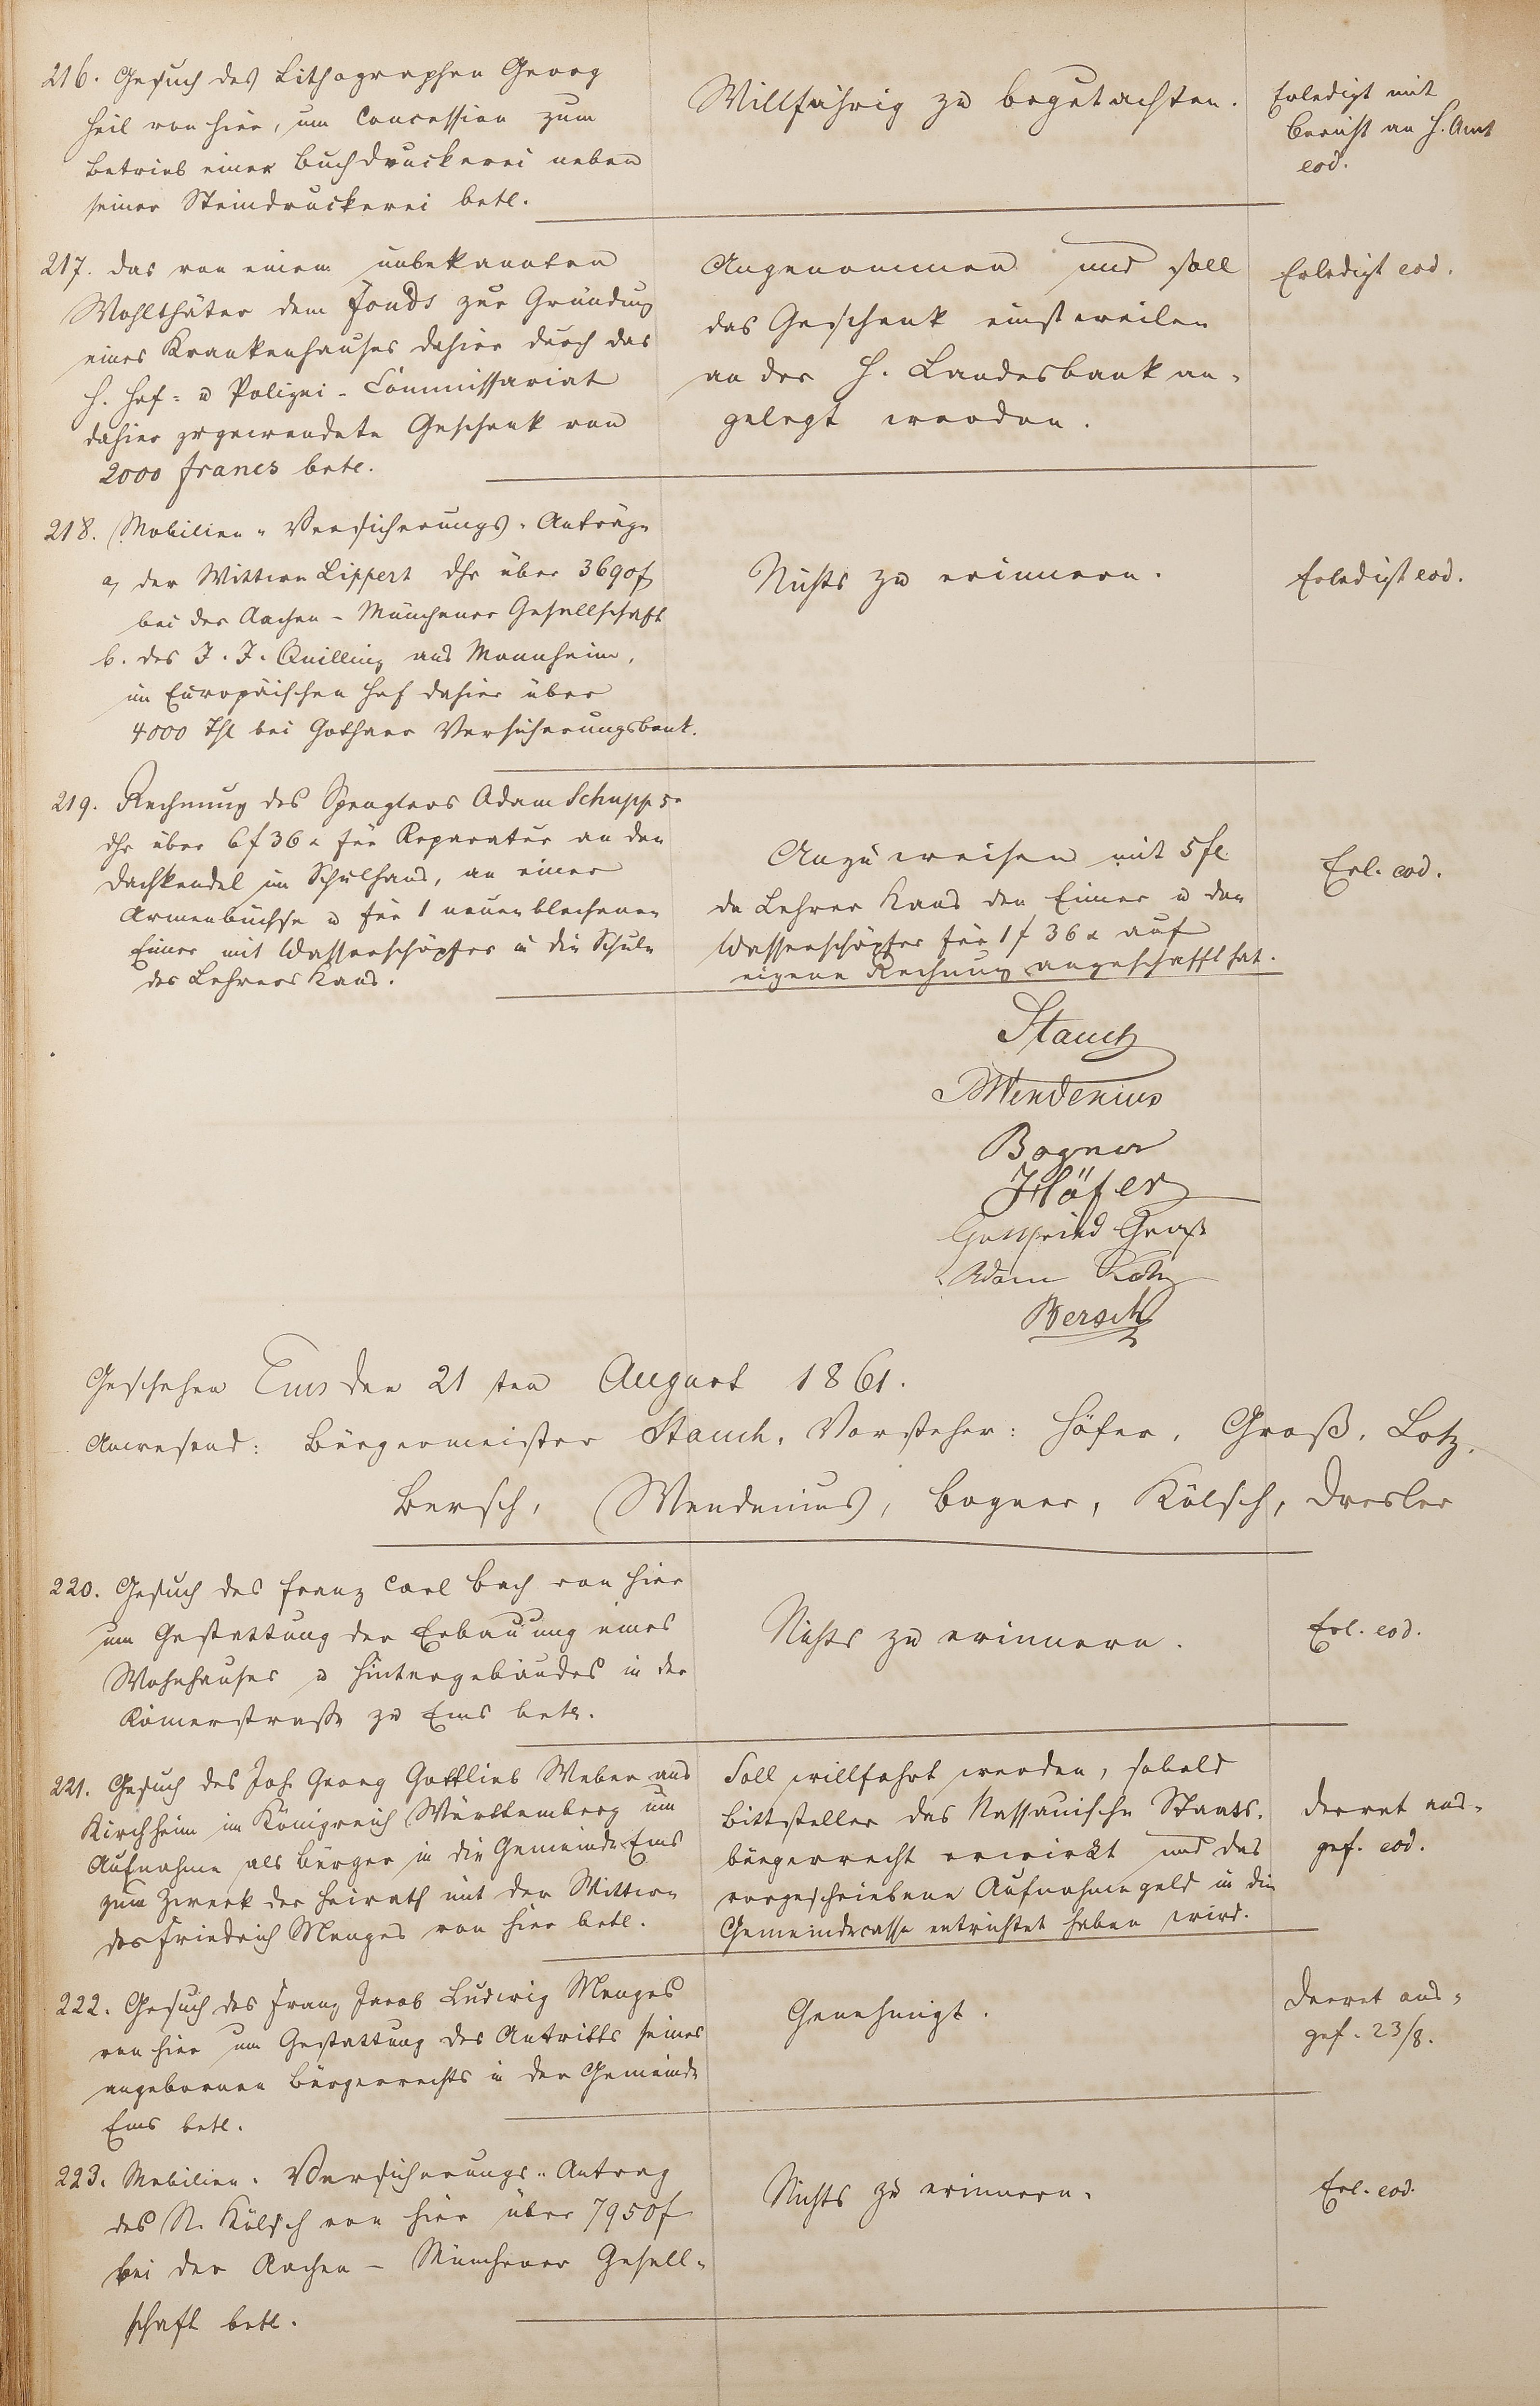 216. Gesuch des Lithographen Georg
Heil von hier, um Concession zum
Betrieb einer Buchdruckerei neben
seiner Steindruckerei betr.
Willfährig zu begutachten.
Erledigt mit
Bericht an H. Amt
eod.
217. Das von einem unbekannten
Wohlthäter dem Fonds zur Gründung
eines Krankenhauses dahier durch das
H. Hof- u Polizei-Commissariat
dahier zugewendete Geschenk von
2000 francs betr.
Angenommen und soll
das Geschenk einstweilen
an der H. Landesbank an-
gelegt werden.
Erledigt eod.
218. Mobilien-Versicherungs-Anträge
a, der Wittwe Lippert dhr über 3690 f
bei der Aachen-Münchener Gesellschaft
b. des J. J. Quilling aus Mannheim,
im Europäischen Hof dahier über
4000 Thl bei Gothaer Versicherungsbank.
Nichts zu erinnern.
Erledigt eod.
219. Rechnung des Spenglers Adam Schupp sr
dhr über 6 f 36 x für Reparatur an den
Dachkendel im Schulhaus, an einer
Armenbüchse u für 1 neuen blechenen
Eimer mit Wasserschöpfer in die Schule
des Lehrers Kaus.
Anzuweisen mit 5 fl
da Lehrer Kaus den Eimer u den
Wasserschöpfer für 1 f 36 x auf
eigene Rechnung angeschafft hat.
Erl. eod.
Stauch
Wendenius
Bogner
Höfer
Gottfried Groß
Adam Lotz
Bersch
Geschehen Ems den 21 ten August 1861.
Anwesend: Bürgermeister Stauch, Vorsteher: Höfer, Groß, Lotz,
Bersch, Wendenius, Bogner, Kölsch, Dresler
220. Gesuch des Franz Carl Bach von hier
um Gestattung der Erbauung eines
Wohnhauses u Hintergebäudes in der
Römerstraße zu Ems betr.
Nichts zu erinnern.
Erl. eod.
221. Gesuch des Joh. Georg Gottlieb Weber aus
Kirchheim im Königreich Württemberg um
Aufnahme als Bürger in die Gemeinde Ems
zum Zweck der Heirath mit der Wittwe
des Friedrich Menges von hier betr.
Soll willfahrt werden, sobald
Bittsteller das Nassauische Staats-
bürgerrecht erwirkt und das
vorgeschriebene Aufnahmegeld in die
Gemeindecasse entrichtet haben wird.
Decret aus-
gef. eod.
222. Gesuch des Franz Jacob Ludwig Menges
von hier um Gestattung des Antritts seines
angebornen Bürgerrechts in der Gemeinde
Ems betr.
Genehmigt.
Decret aus-
gef. 23/8.
223. Mobilien-Versicherungs-Antrag
des N. Kölsch von hier über 7950 f
bei der Aachen-Münchener Gesell-
schaft betr.
Nichts zu erinnern.
Erl. eod.